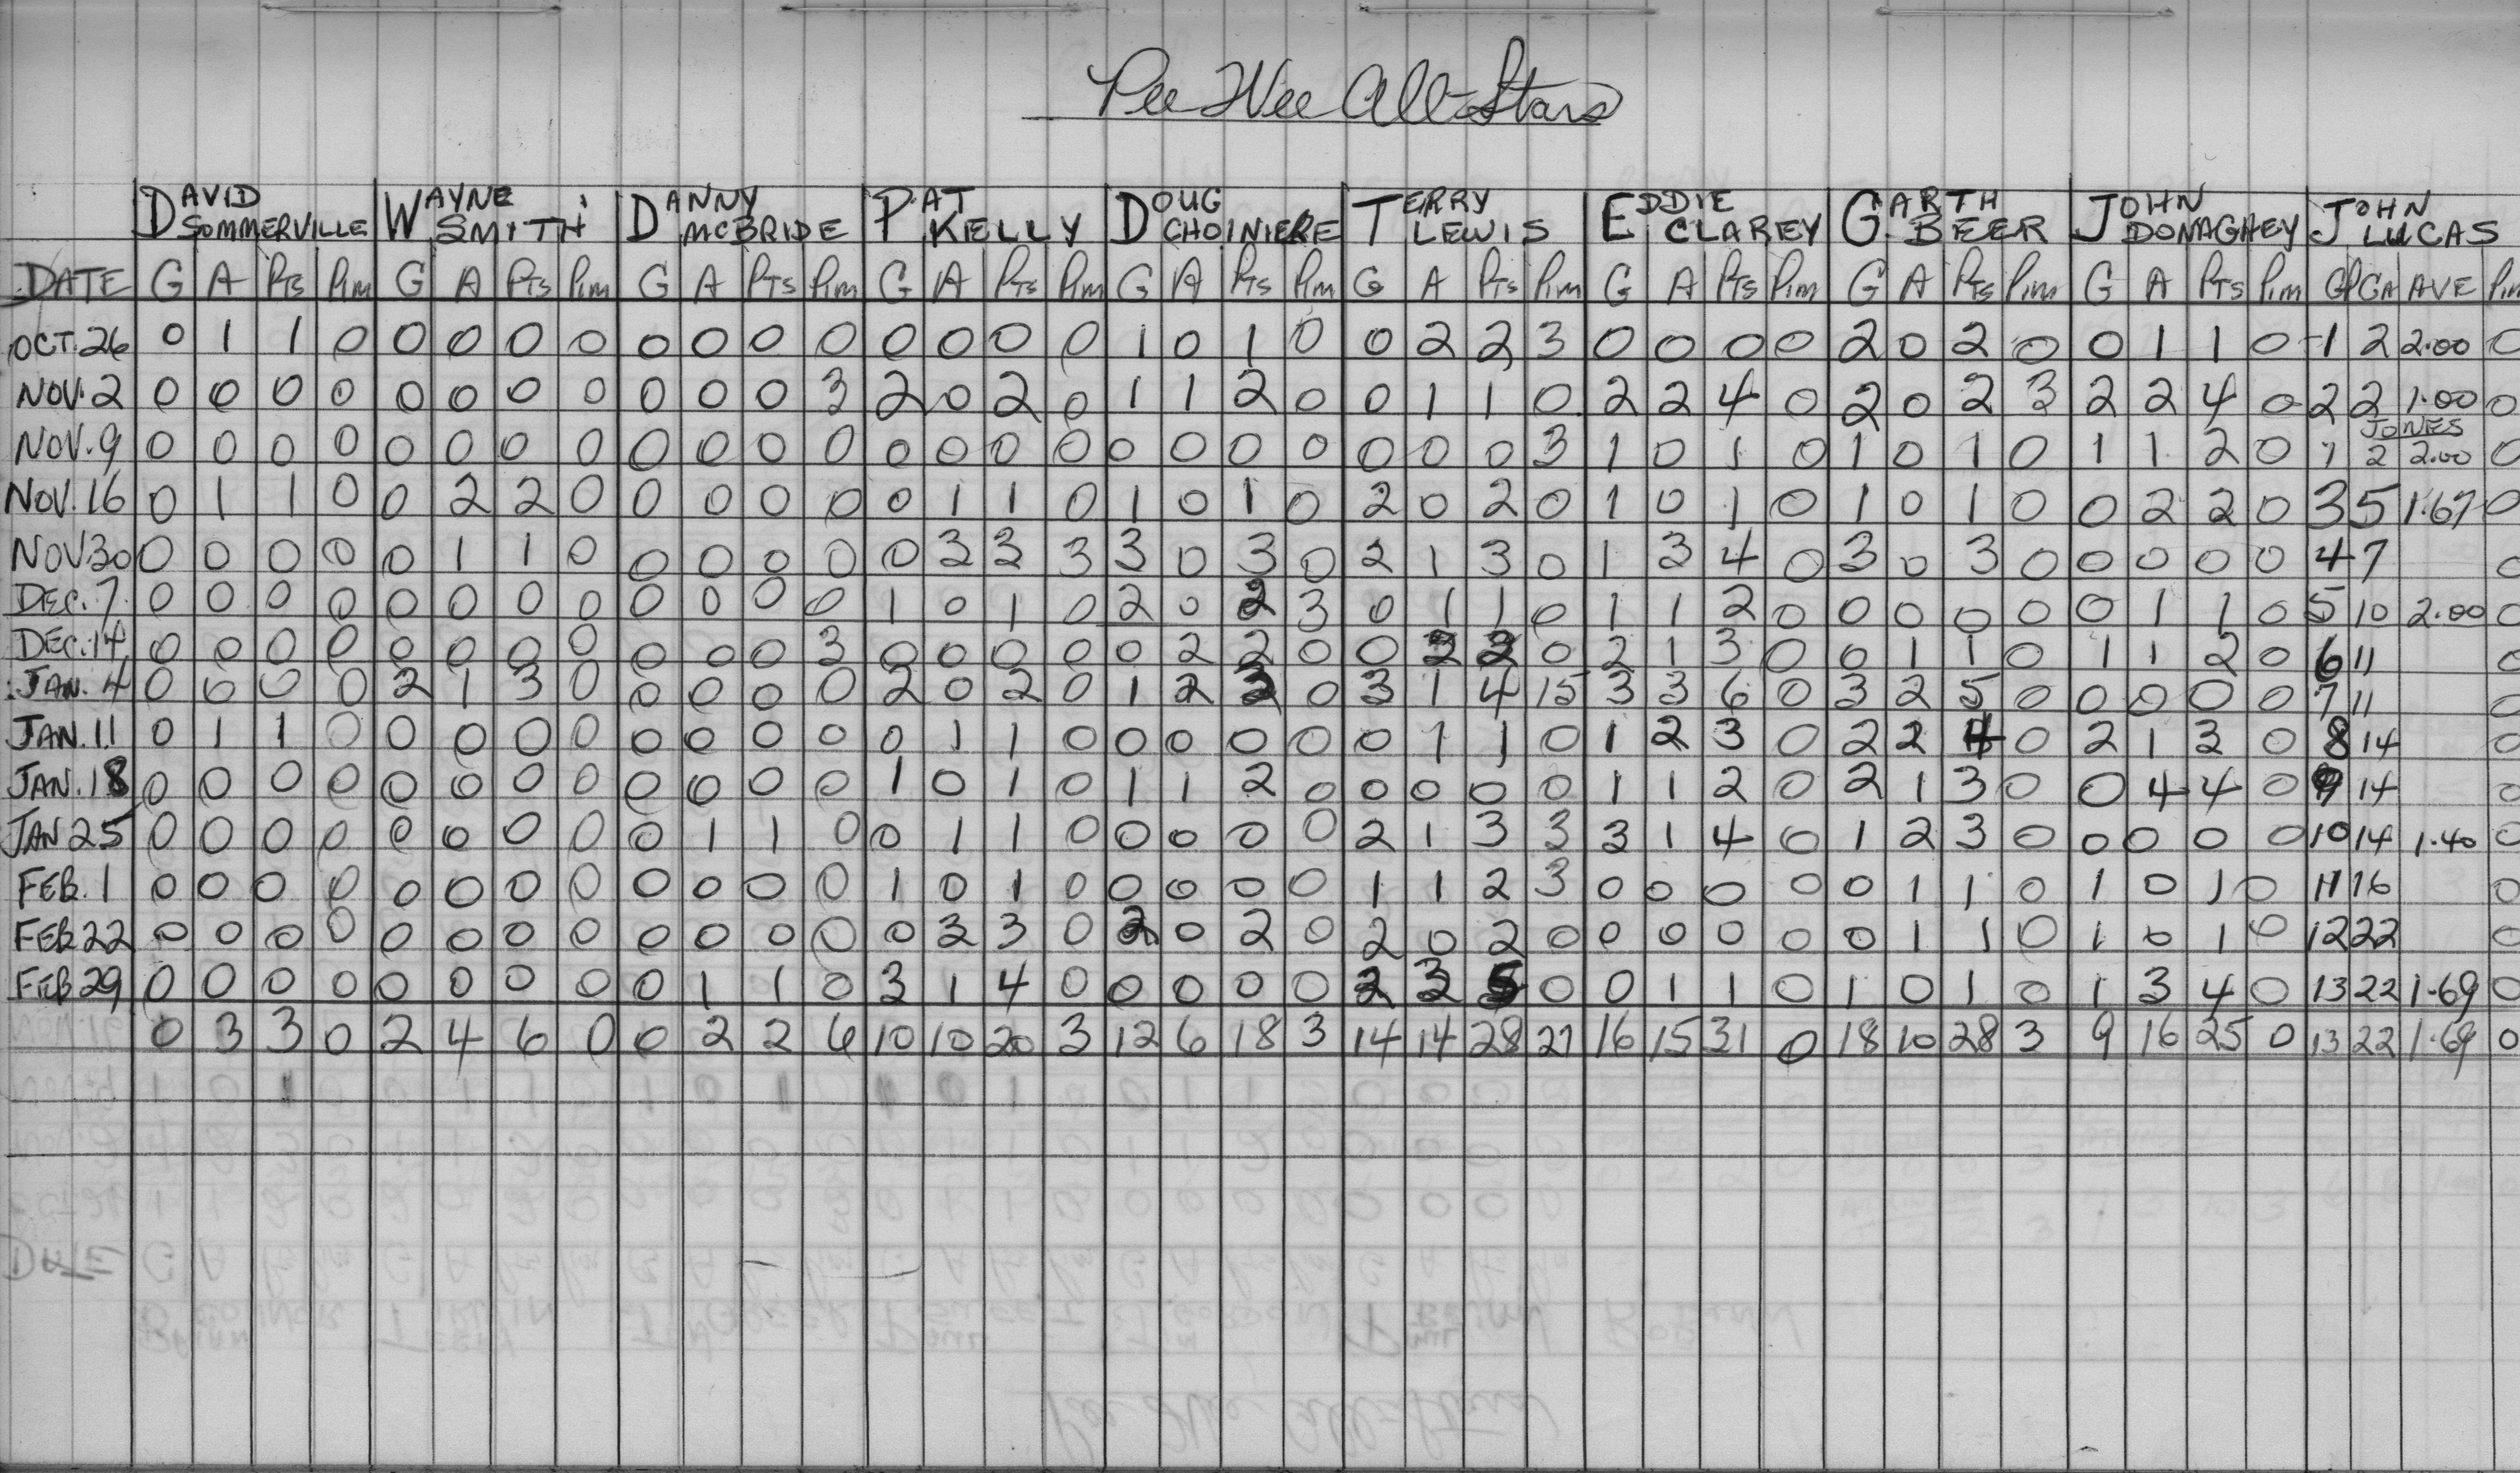 Pee Wee All-Stars
DAVID SOMMERVILLE WAYNE SMITH DANNY MCBRIDE PAT KELLY DOUG CHOINIERE TERRY LEWIS EDDIE CLAREY GARTH BEER JOHN DONAGHEY JOHN LUCAS
DATE G A Pts Pim G A Pts Pim G A Pts Pim G A Pts Pim G A Pts Pim G A Pts Pim G A Pts Pim G A Pts Pim G A Pts Pim GP GA AVE Pim
OCT. 26 0 1 1 0 0 0 0 0 0 0 0 0 0 0 0 0 1 0 1 0 0 2 2 3 0 0 0 0 2 0 2 0 0 1 1 0 1 2 2.00 0
NOV. 2 0 0 0 0 0 0 0 0 0 0 0 3 2 0 2 0 1 1 2 0 0 1 1 0 2 2 4 0 2 0 2 3 2 2 4 0 2 2 1.00 0
JONES
NOV. 9 0 0 0 0 0 0 0 0 0 0 0 0 0 0 0 0 0 0 0 0 0 0 0 3 1 0 1 0 1 0 1 0 1 1 2 0 1 2 2.00 0
NOV. 16 0 1 1 0 0 2 2 0 0 0 0 0 0 1 1 0 1 0 1 0 2 0 2 0 1 0 1 0 1 0 1 0 0 2 2 0 3 5 1.67 0
NOV 30 0 0 0 0 0 1 1 0 0 0 0 0 0 3 3 3 3 0 3 0 2 1 3 0 1 3 4 0 3 0 3 0 0 0 0 0 4 7 0
DEC. 7 0 0 0 0 0 0 0 0 0 0 0 0 1 0 1 0 2 0 2 3 0 1 1 0 1 1 2 0 0 0 0 0 0 1 1 0 5 10 2.00 0
DEC. 14 0 0 0 0 0 0 0 0 0 0 0 3 0 0 0 0 0 2 2 0 0 2 2 0 2 1 3 0 0 1 1 0 1 1 2 0 6 11 0
JAN. 4 0 0 0 0 2 1 3 0 0 0 0 0 2 0 2 0 1 2 3 0 3 1 4 15 3 3 6 0 3 2 5 0 0 0 0 0 7 11 0
JAN. 11 0 1 1 0 0 0 0 0 0 0 0 0 0 1 1 0 0 0 0 0 0 1 1 0 1 2 3 0 2 2 4 0 2 1 3 0 8 14 0
JAN. 18 0 0 0 0 0 0 0 0 0 0 0 0 1 0 1 0 1 1 2 0 0 0 0 0 1 1 2 0 2 1 3 0 0 4 4 0 9 14 0
JAN 25 0 0 0 0 0 0 0 0 0 1 1 0 0 1 1 0 0 0 0 0 2 1 3 3 3 1 4 0 1 2 3 0 0 0 0 0 10 14 1.40 0
FEB. 1 0 0 0 0 0 0 0 0 0 0 0 0 1 0 1 0 0 0 0 0 1 1 2 3 0 0 0 0 0 1 1 0 1 0 1 0 11 16 0
FEB 22 0 0 0 0 0 0 0 0 0 0 0 0 0 3 3 0 2 0 2 0 2 0 2 0 0 0 0 0 0 1 1 0 1 0 1 0 12 22 0
FEB 29 0 0 0 0 0 0 0 0 0 1 1 0 3 1 4 0 0 0 0 0 2 3 5 0 0 1 1 0 1 0 1 0 1 3 4 0 13 22 1.69 0
0 3 3 0 2 4 6 0 0 2 2 6 10 10 20 3 12 6 18 3 14 14 28 27 16 15 31 0 18 10 28 3 9 16 25 0 13 22 1.69 0